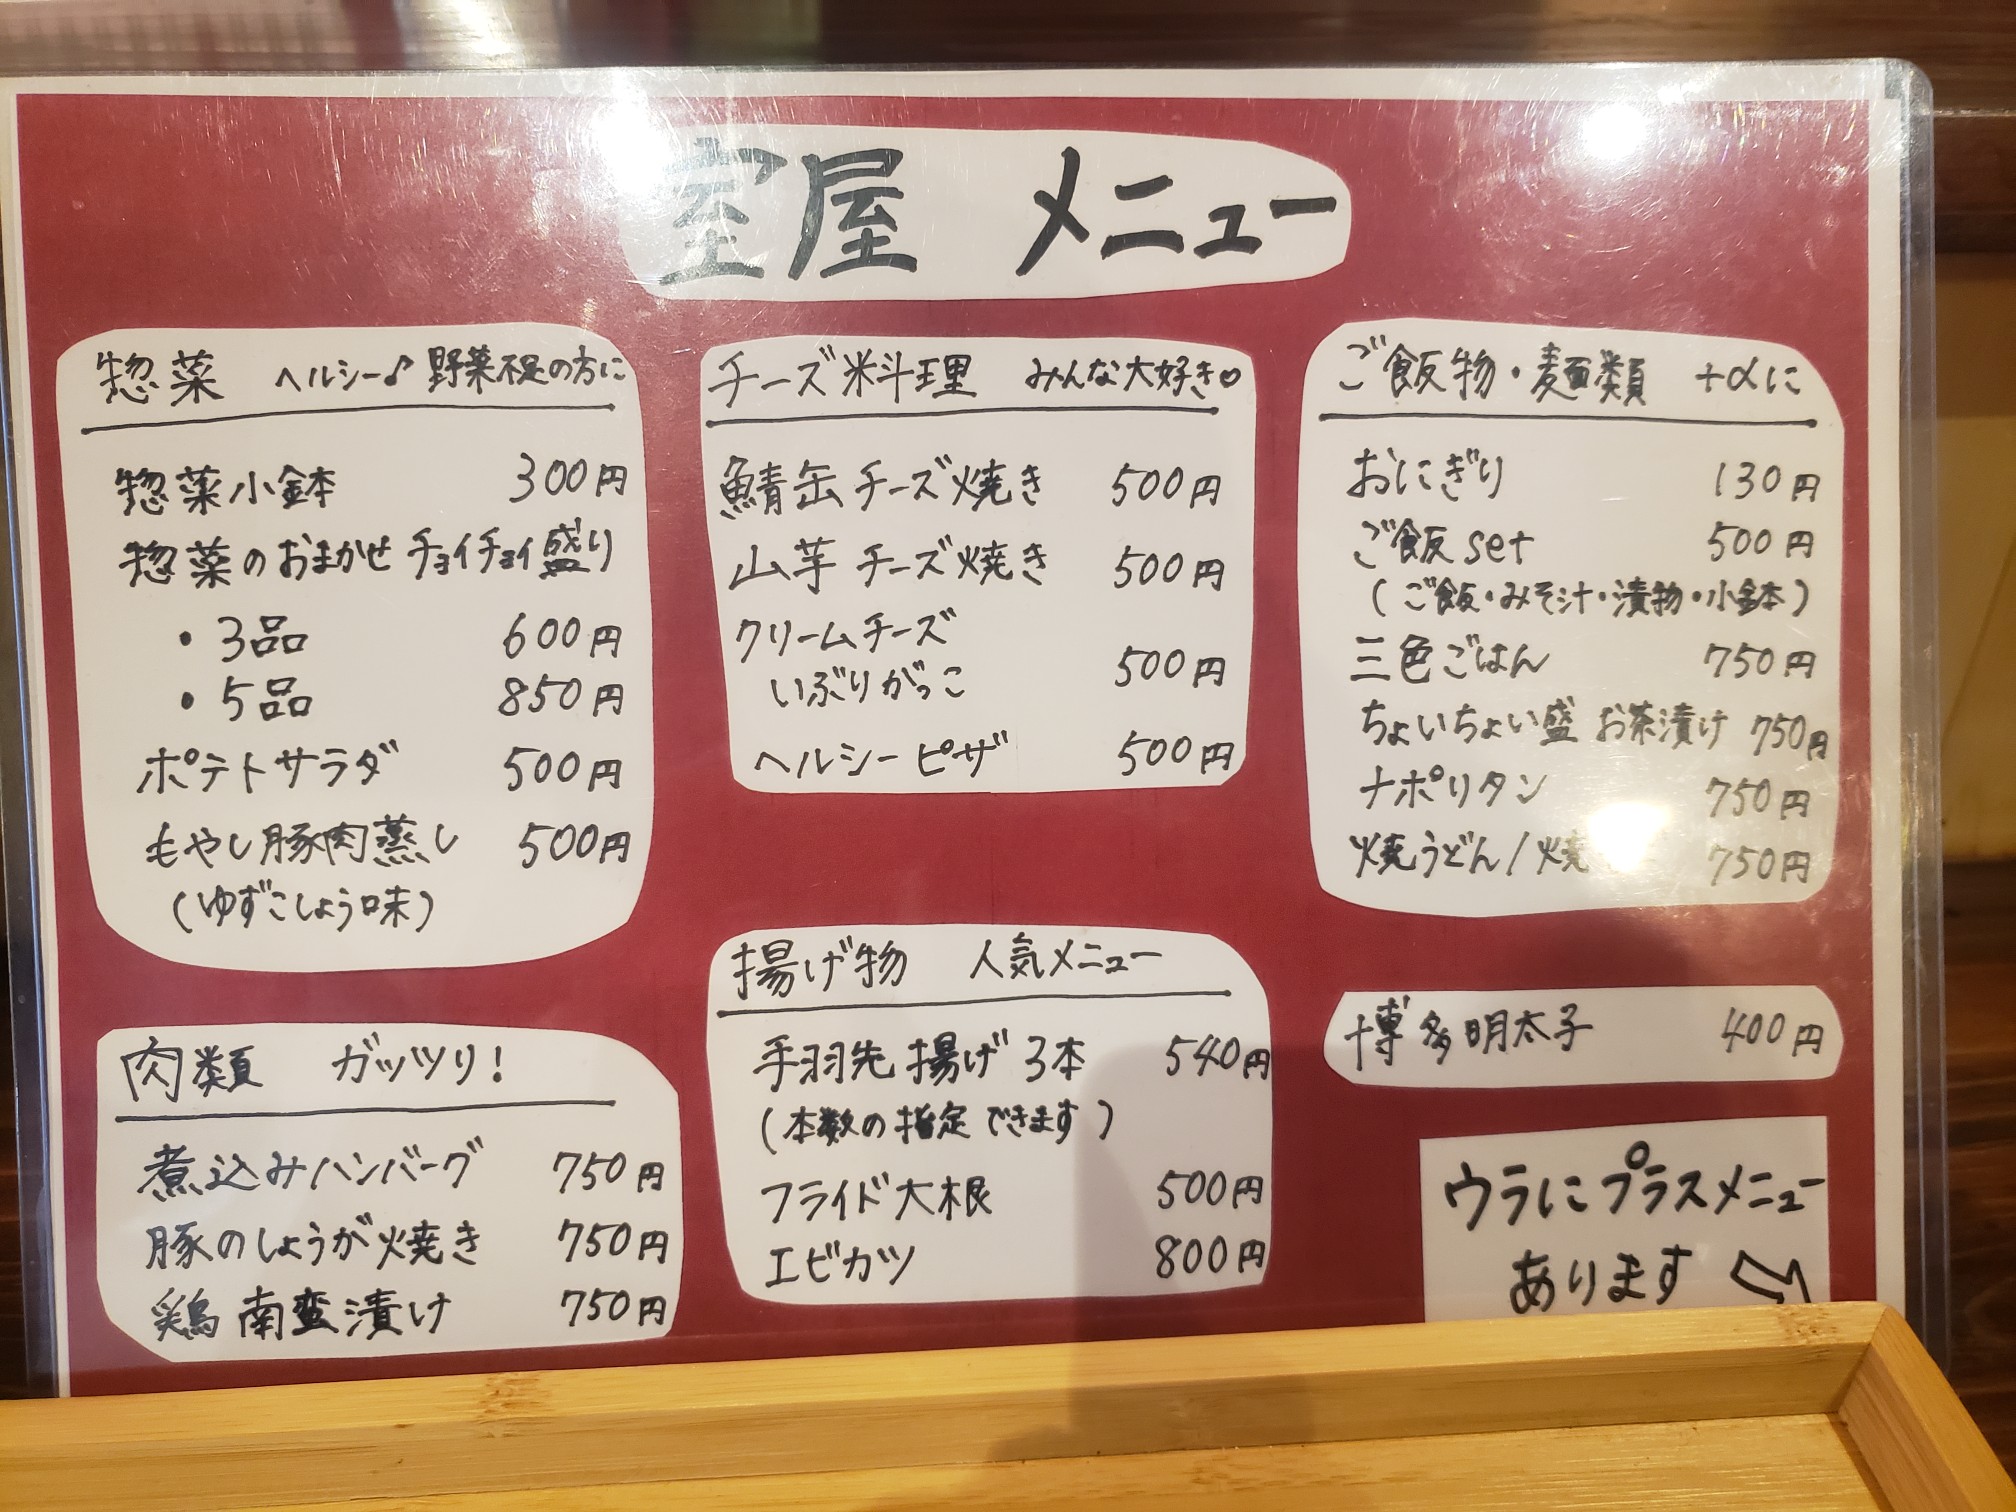 室屋 メニュー
惣菜 ヘルシー♪ 野菜不足の方に
惣菜小鉢 300円
惣菜のおまかせ チョイチョイ盛り
・3品 600円
・5品 850円
ポテトサラダ 500円
もやし豚肉蒸し 500円
(ゆずこしょう味)
肉類 ガッツリ!
煮込みハンバーグ 750円
豚のしょうが焼き 750円
鶏南蛮漬け 750円
チーズ料理 みんな大好き♡
鯖缶チーズ焼き 500円
山芋チーズ焼き 500円
クリームチーズ
いぶりがっこ 500円
ヘルシーピザ 500円
揚げ物 人気メニュー
手羽先揚げ 3本 540円
(本数の指定できます)
フライド大根 500円
エビカツ 800円
ご飯物・麺類 +αに
おにぎり 130円
ご飯set 500円
(ご飯・みそ汁・漬物・小鉢)
三色ごはん 750円
ちょいちょい盛 お茶漬け 750円
ナポリタン 750円
焼うどん/焼 750円
博多明太子 400円
ウラにプラスメニュー
あります